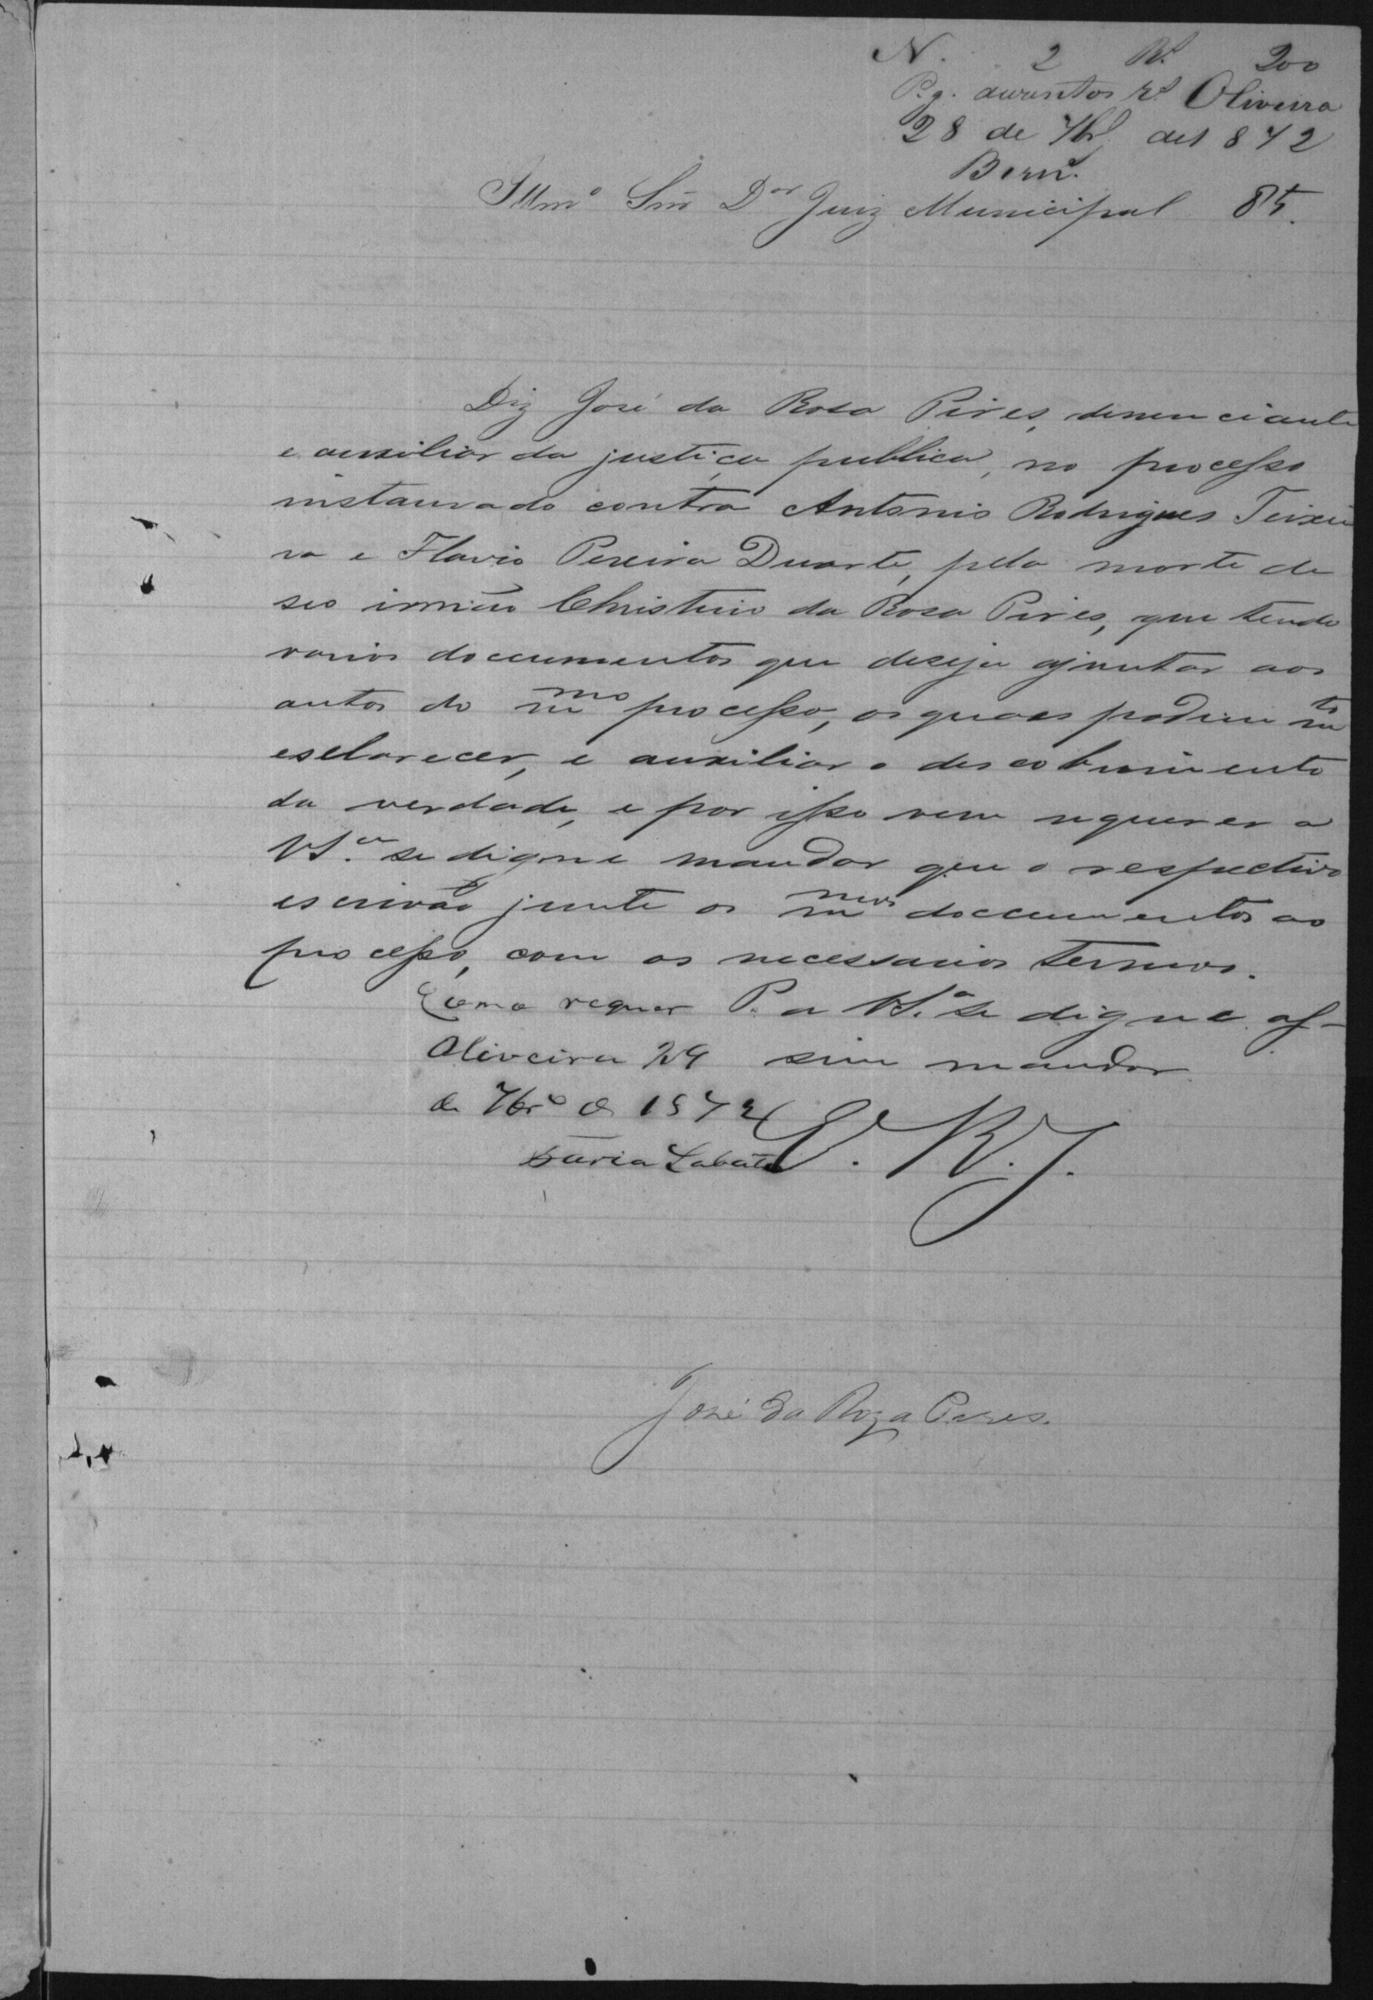 N. 2 Rs 200
Pg. dusentos rs Oliveira
28 de 7br de 1872
Illmo Snr Dor Juiz Municipal 85.
Diz José da Rosa Pires, denunciante
e auxiliar da justiça publica, no processo
instaurado contra Antonio Rodrigues Teixei
ra e Flavio Pereira Duarte, pela morte de
seo irmão Christino da Rosa Pires, que tendo
varios documentos que deseja ajuntar aos
autos do mmo processo, os quaes podem mto
esclarecer, e auxiliar o descobrimento
da verdade, e por isso vem requerer a
VSa. se digne mandar que o respectivo
escrivão junte os mmos documentos ao
processo, com os necessarios termos.
Como requer P. a VSa. se digne as-
Oliveira 29 sim mandar
de 7bro de 1872
E. R. J.
José da Roza Peres.